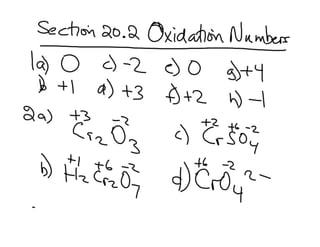 Section 20.2 Oxidation Numbers
1a) 0 c) -2 e) 0 g) +4
b +1 d) +3 f) +2 h) -1
2a) +3 -2 Cr₂O₃ c) +2 +6 -2 CrSO₄
b) +1 +6 -2 H₂Cr₂O₇ d) +6 -2 CrO₄²⁻